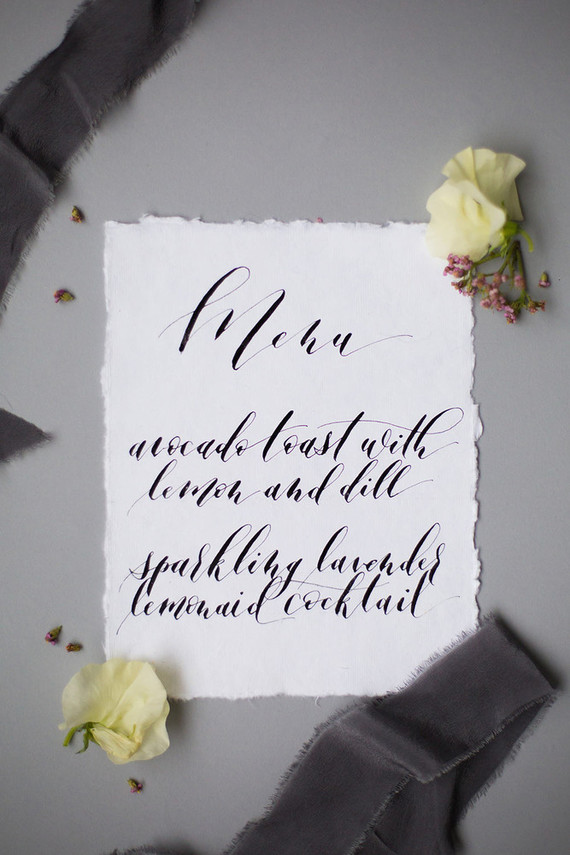 Menu
avocado toast with
lemon and dill
sparkling lavender
lemonaid cocktail